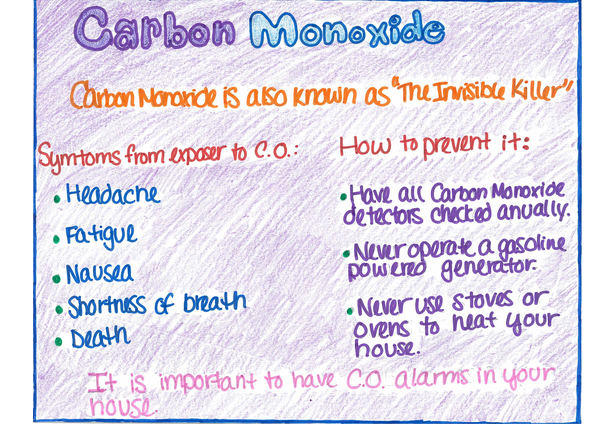 Carbon Monoxide
Carbon Monoxide is also known as "The Invisible Killer"
Symtoms from exposer to C.O.:
• Headache
• Fatigue
• Nausea
• Shortness of breath
• Death
How to prevent it:
• Have all Carbon Monoxide
detectors checked anually.
• Never operate a gasoline
powered generator.
• Never use stoves or
ovens to heat your
house.
It is important to have C.O. alarms in your
house.